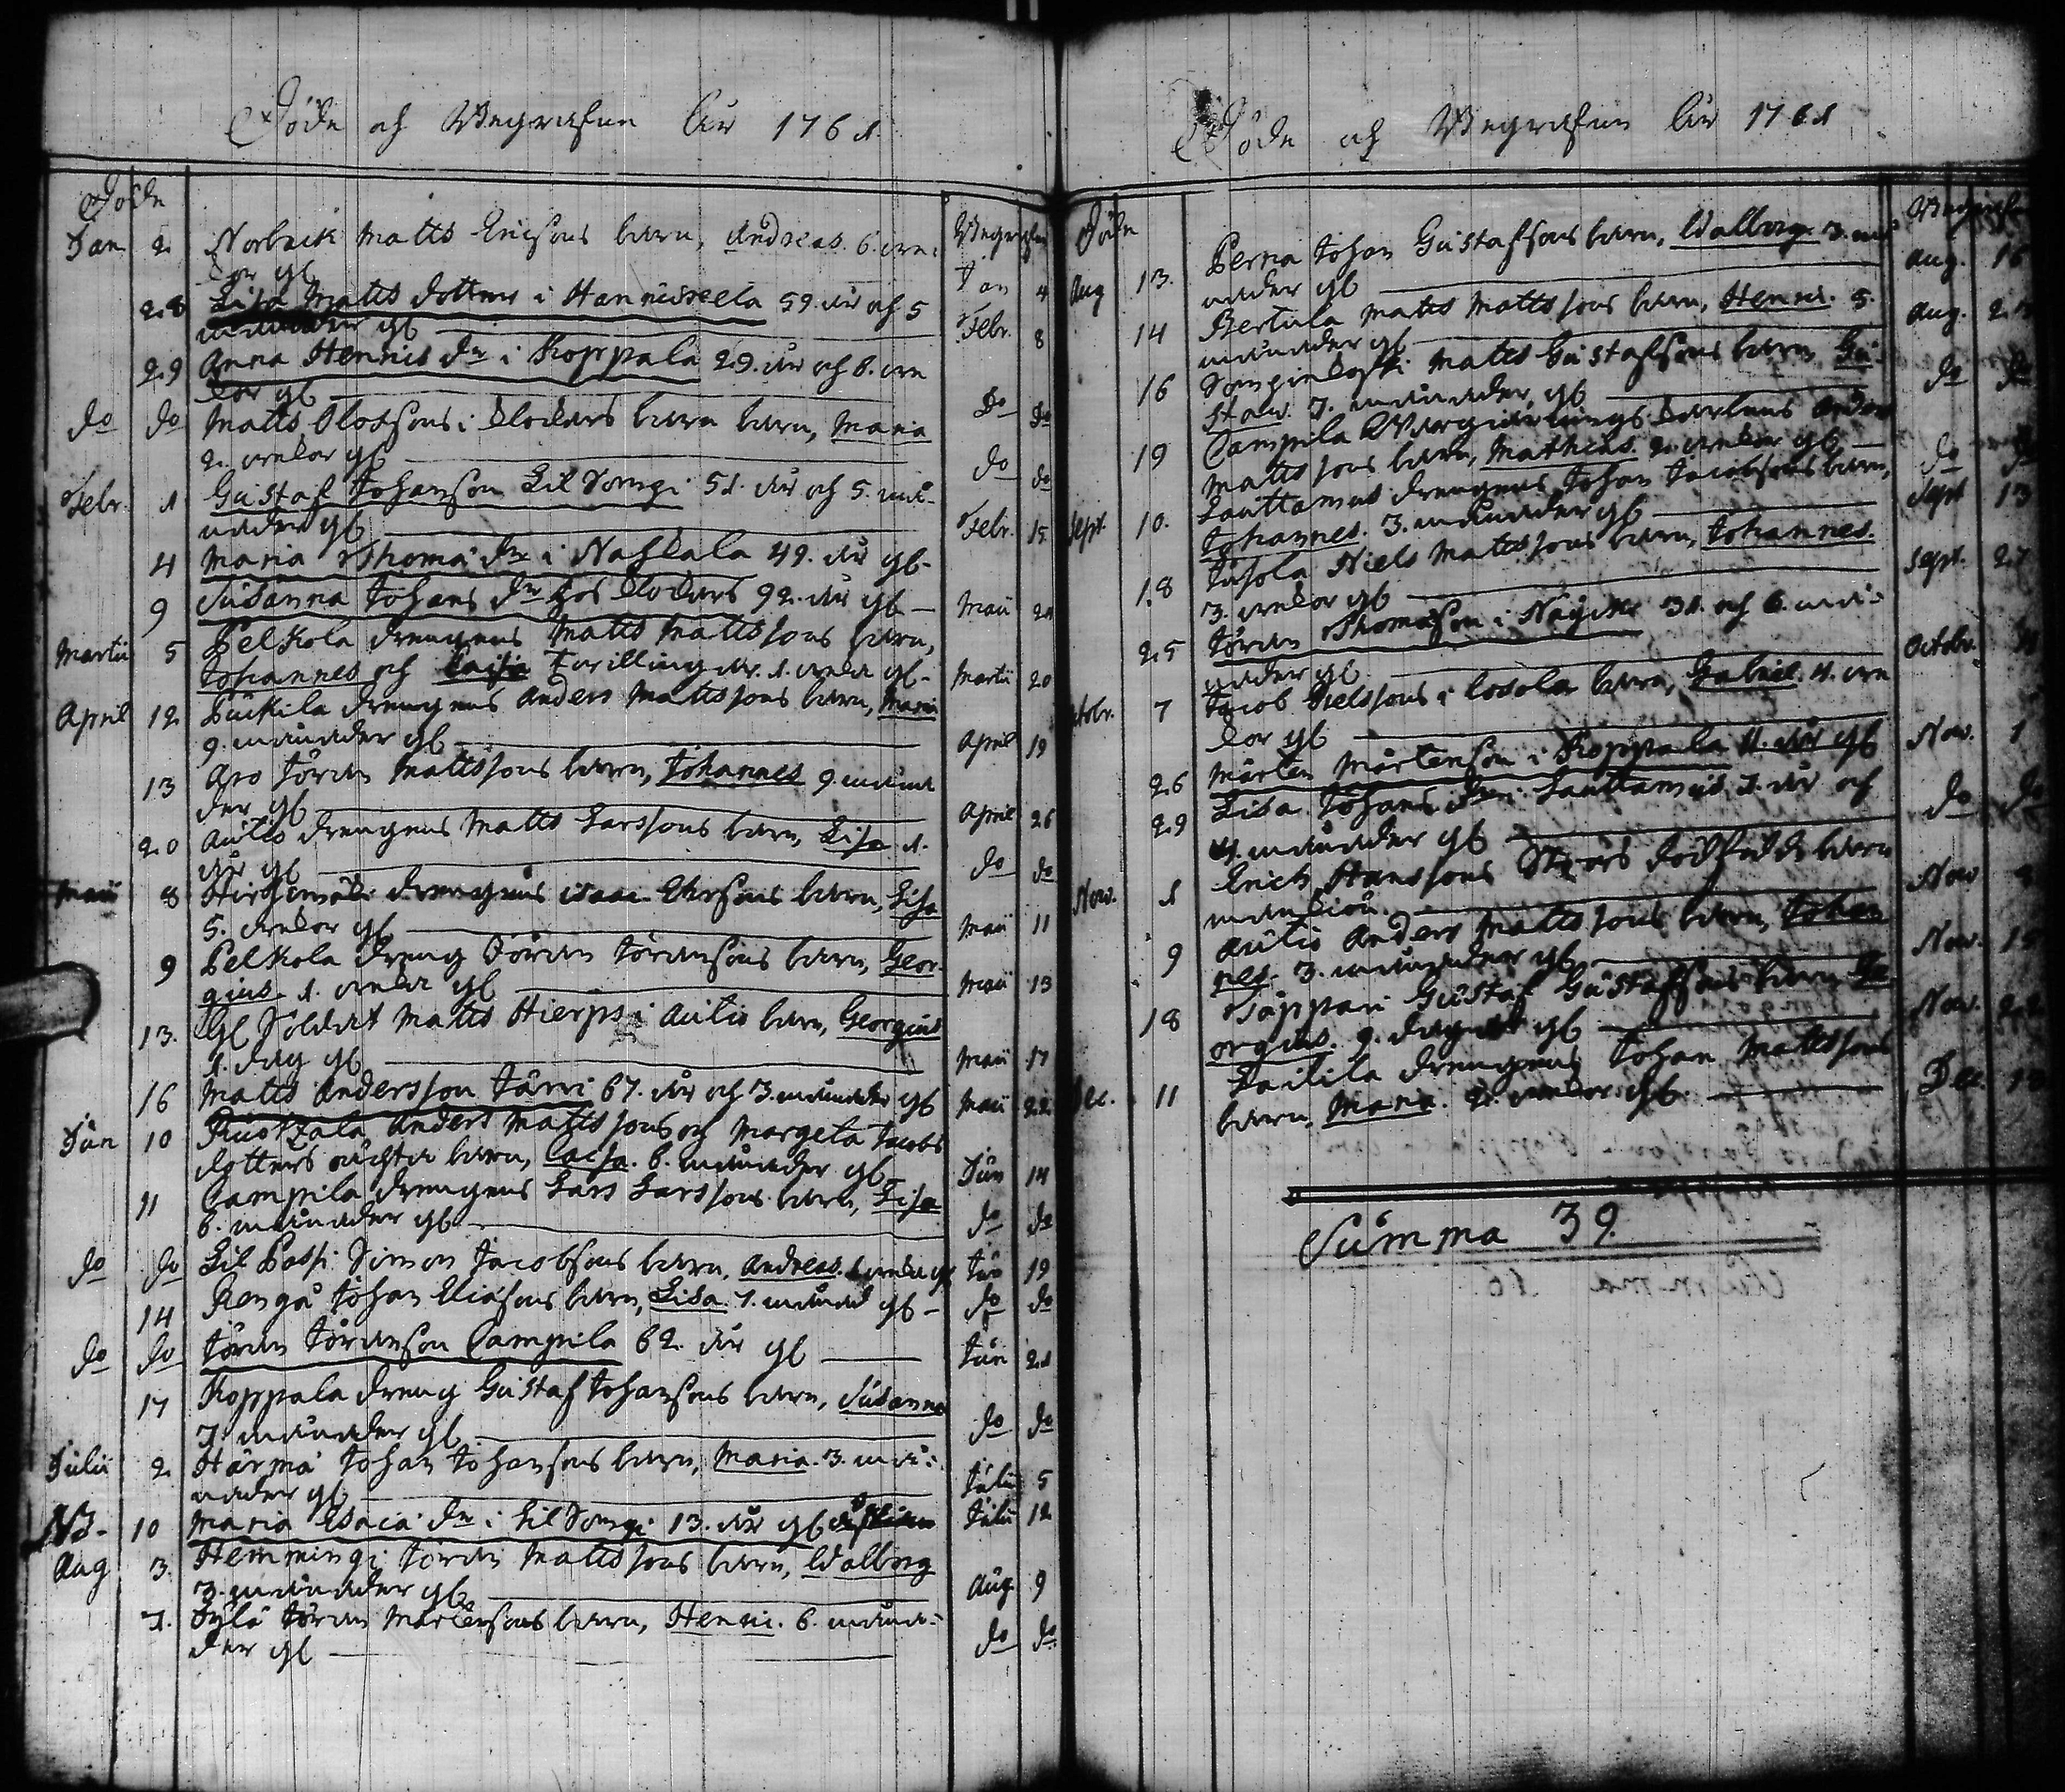 Döde och Begrafne åhr 1761
Döde
Begrafne
Jan 2. Norback Matts Ericsons barn, Andreas. 6. vec-
kor gl. Jan 4
28 Lisa Matts dotter i Hannuxela 59. år och 5
månader gl. Febr. 8
29 Anna Henrics dr i Koppala 29. år och 6. vec
kor gl. do do
do do Matts Olofsons i Clockars barn barn, Maria
2. veckor gl. do do
Febr. 1 Gustaf Johanson Lil Sorngi 51. år och 5. må-
nader gl. Febr. 15
4 Maria Thomæ dr i Nahkala 49. år gl.
9 Susanna Johans dr hos Clockars 92. år gl. Maii 24
Martii 5 Pelkola drengens Matts Mattssons barn,
Johannes och Caisa twillingar. 1. vecka gl. Martii 20
April 12 Puckila drengens Anders Mattssons barn, Maria
9. månader gl. April 19
13 Apo Jöran Mattssons barn, Johannes 9 måna
der gl. April 26
20 Autio drengens Matts Larssons barn, Lisa 1.
år gl. do do
Maii 8 drengens Isaac Ehrsons barn, Lisa
5. veckor gl. Maii 11
9 Pelkola dreng Jöran Jöransons barn, Geor-
gius 1. vecka gl. Maii 13
13. Gl Soldat Matts Hierps i Autio barn, Georgius
1. dag gl. Maii 17
16 Matts Andersson Järvi 67. år och 3. månader gl. Maii 22
Jun 10 Ruotzala Anders Mattssons och Margeta Jacobs
dotters oächta barn, Caisa. 6. månader gl. Jun 14
11 Campila drengens Lars Larssons barn, Lisa
6. månader gl. do do
do do Lil Passi Simon Jacobsons barn, Andreas. 1 vecka gl. Jun 19
14 Rengå Johan Eliæsons barn, Lisa 1. månad gl. do do
do do Jöran Jöranson Campila 62. år gl. Jun 21
17 Koppala dreng Gustaf Johansons barn, Susanna
7. månader gl. do do
Julii 2. Härmä Johan Johansons barn, Maria. 3. må-
nader gl. Julii 5
NB. 10 Maria Esaiæ dr i Lil Sorngi 13. år gl. Julii 12
Aug 3. Hemmingi Jöran Mattssons barn, Walborg
3. månader gl. Aug. 9
7. Jylä Jöran Mårtensons barn, Henric. 6. måna-
der gl. do do
Döde och Begrafne åhr 1761
Döde
Begrafne
Aug 13. Perna Johan Gustafsons barn, Walborg. 3. må
nader gl. Aug. 16
14 Bertula Matts Mattssons barn, Henric. 5.
månader gl. Aug. 23
16 Matts Gustafsons barn, Gu-
staw. 7. månader gl. do do
19 Campila barn Anders
Mattssons barn, Mathias. 2. veckor gl. do do
Sept. 10. Lauttamus drengens Johan Jacobsons barn,
Johannes. 3. månader gl. Sept 13
18 Jusola Niels Mattssons barn, Johannes.
3. veckor gl. Sept. 27
25 Jöran Thomæson i Någike 31. och 6. må-
nader gl. Octobr.
Octobr. 7 Jacob Nielssons i Cosola barn, Gabriel. 4. vec
kor gl. Nov. 1
26 Mårten Mårtenson i Koppala 11. år gl.
29 Lisa Johans dr i Lauttamus 7. år och
4. månader gl. do do
Nov. 1 Erich Hanssons Stors dödfödde barn
mankiön. Nov
9 Autio Anders Mattssons barn, Johan
nes. 3. månader gl. Nov. 15
18 Töppari Gustaf Gustafsons barn Ge
orgius. 9. dagar gl. Nov. 22
Dec. 11 Laitila drengens Johan Mattssons
barn, Maria. 2. veckor gl. Dec.
Summa 39.